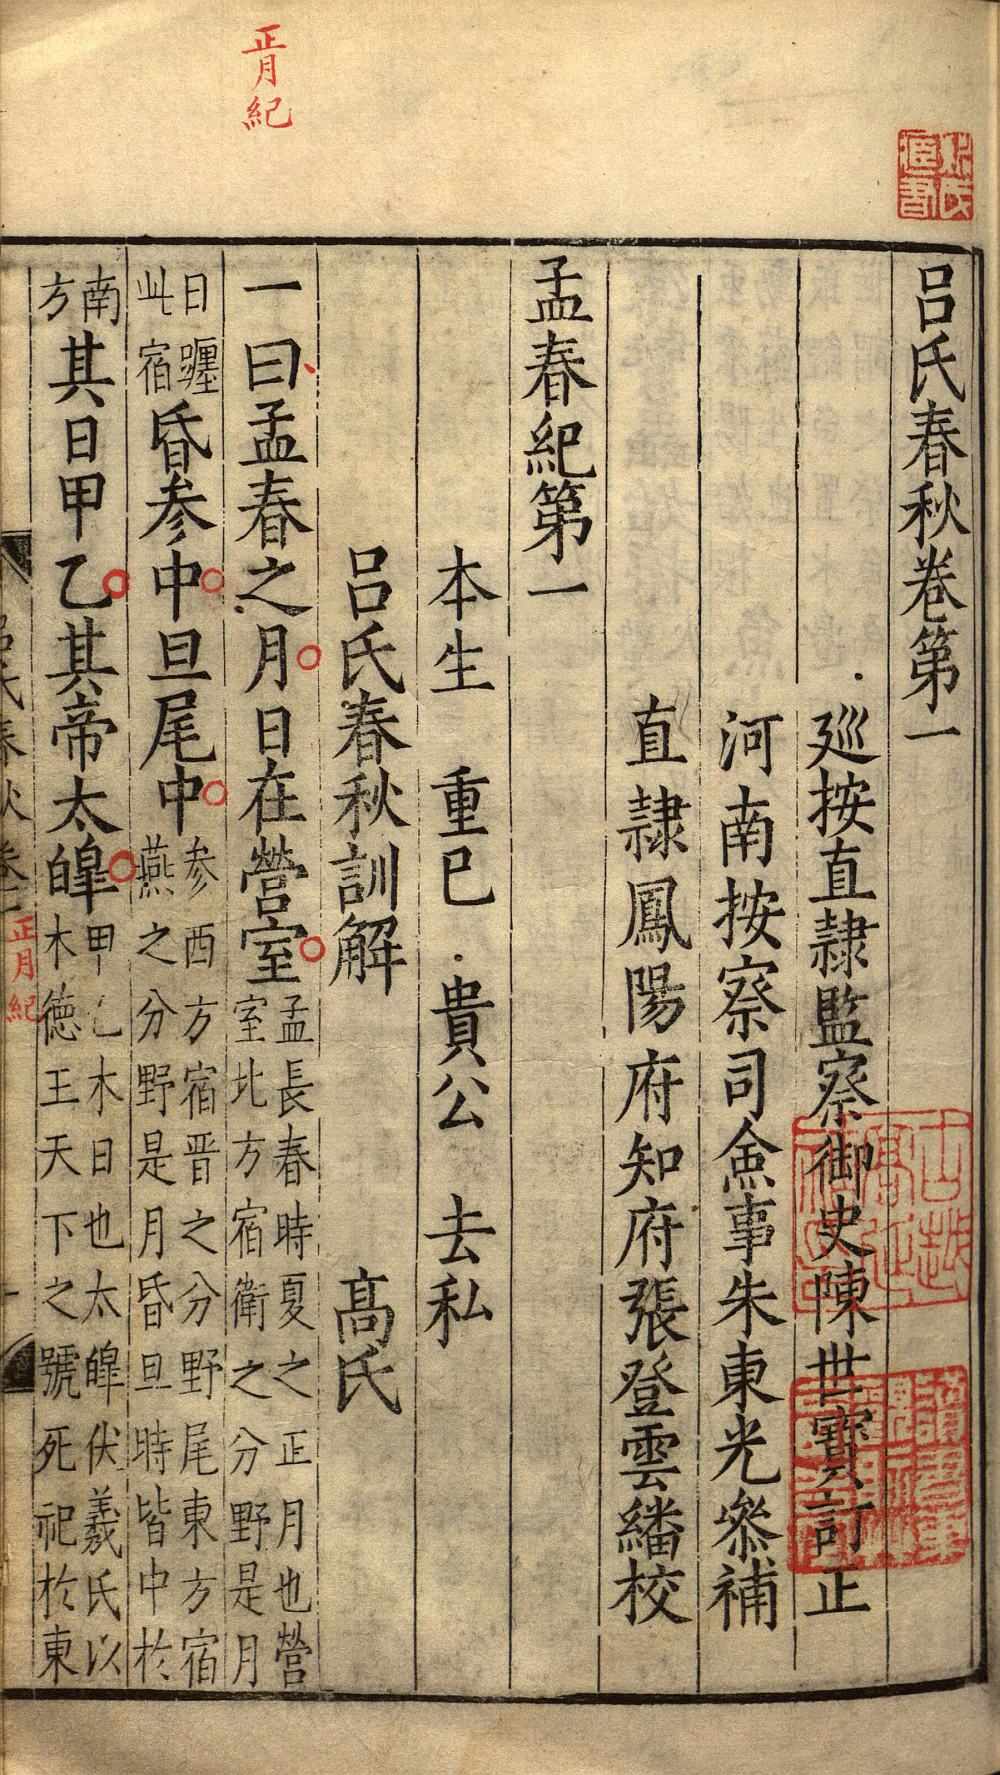 正月紀
呂氏春秋卷第一
廵按直隷監察御史陳世寶訂正
河南按察司僉事朱東光叅補
直隷鳳陽府知府張登雲繙校
孟春紀第一
本生 重巳 貴公 去私
呂氏春秋訓解 高氏
一曰孟春之月日在營室孟長春時夏之正月也營室北方宿衛之分野是月
日躔此宿昏参中旦尾中参西方宿晋之分野尾東方宿燕之分野是月昏旦時皆中於
南方其日甲乙其帝太皞甲乙木日也太皞伏羲氏以木徳王天下之號死祀於東
呂氏春秋 卷一
正月紀